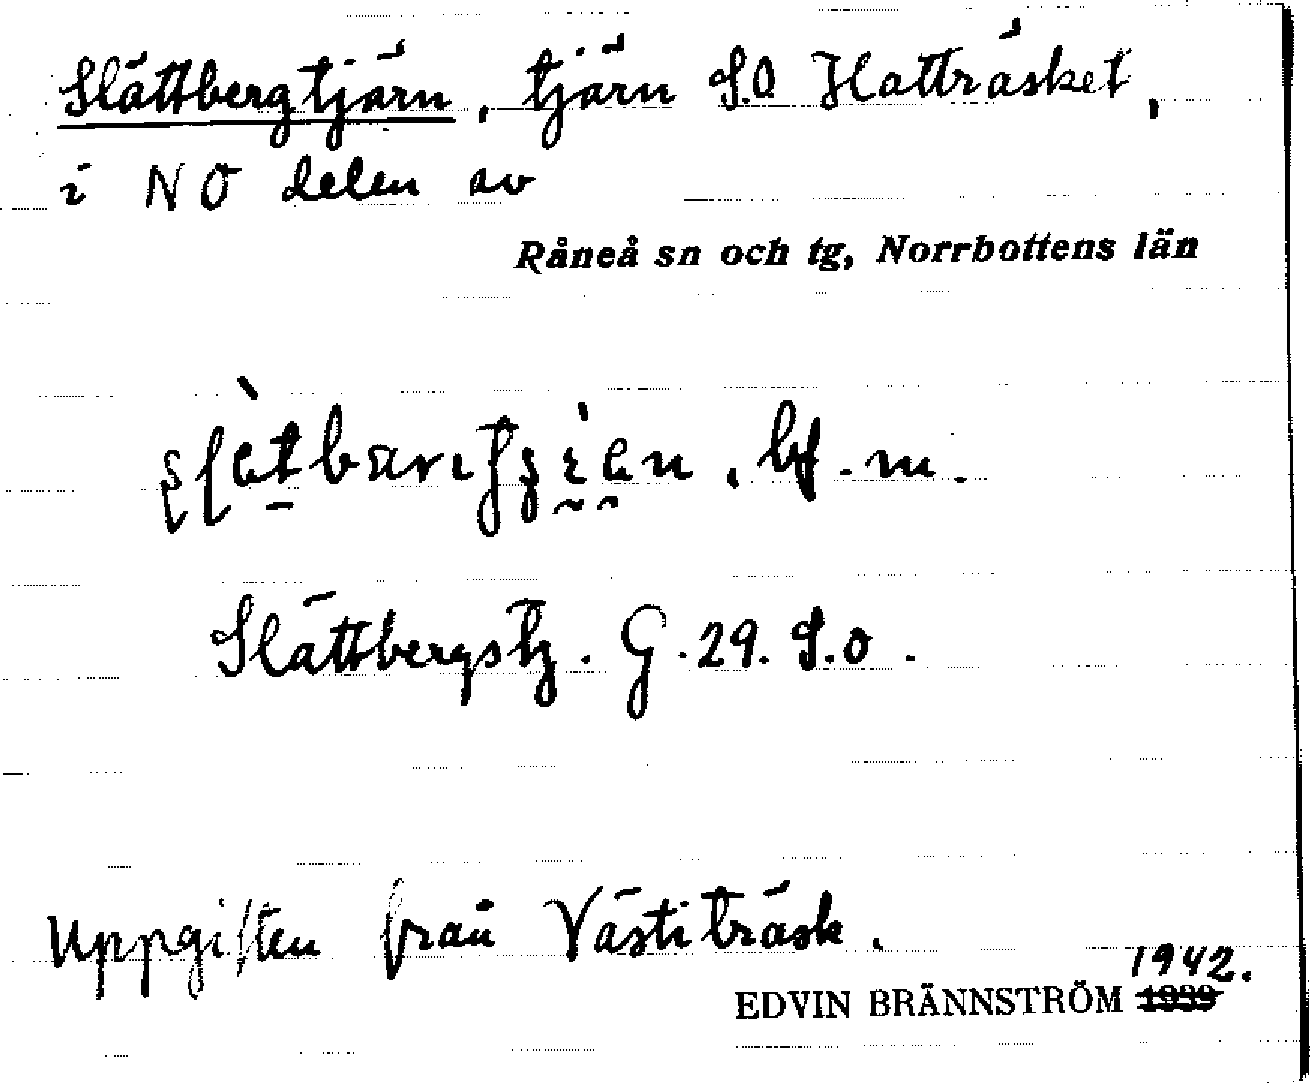 Slättbergtjärn, tjärn S.O Hatträsket,
i NO delen av
Råneå sn och tg, Norrbottens län
bf. m.
Slättbergstj. G. 29. S.o.
Uppgiften från Västiträsk.
1942.
EDVIN BRÄNNSTRÖM 1939